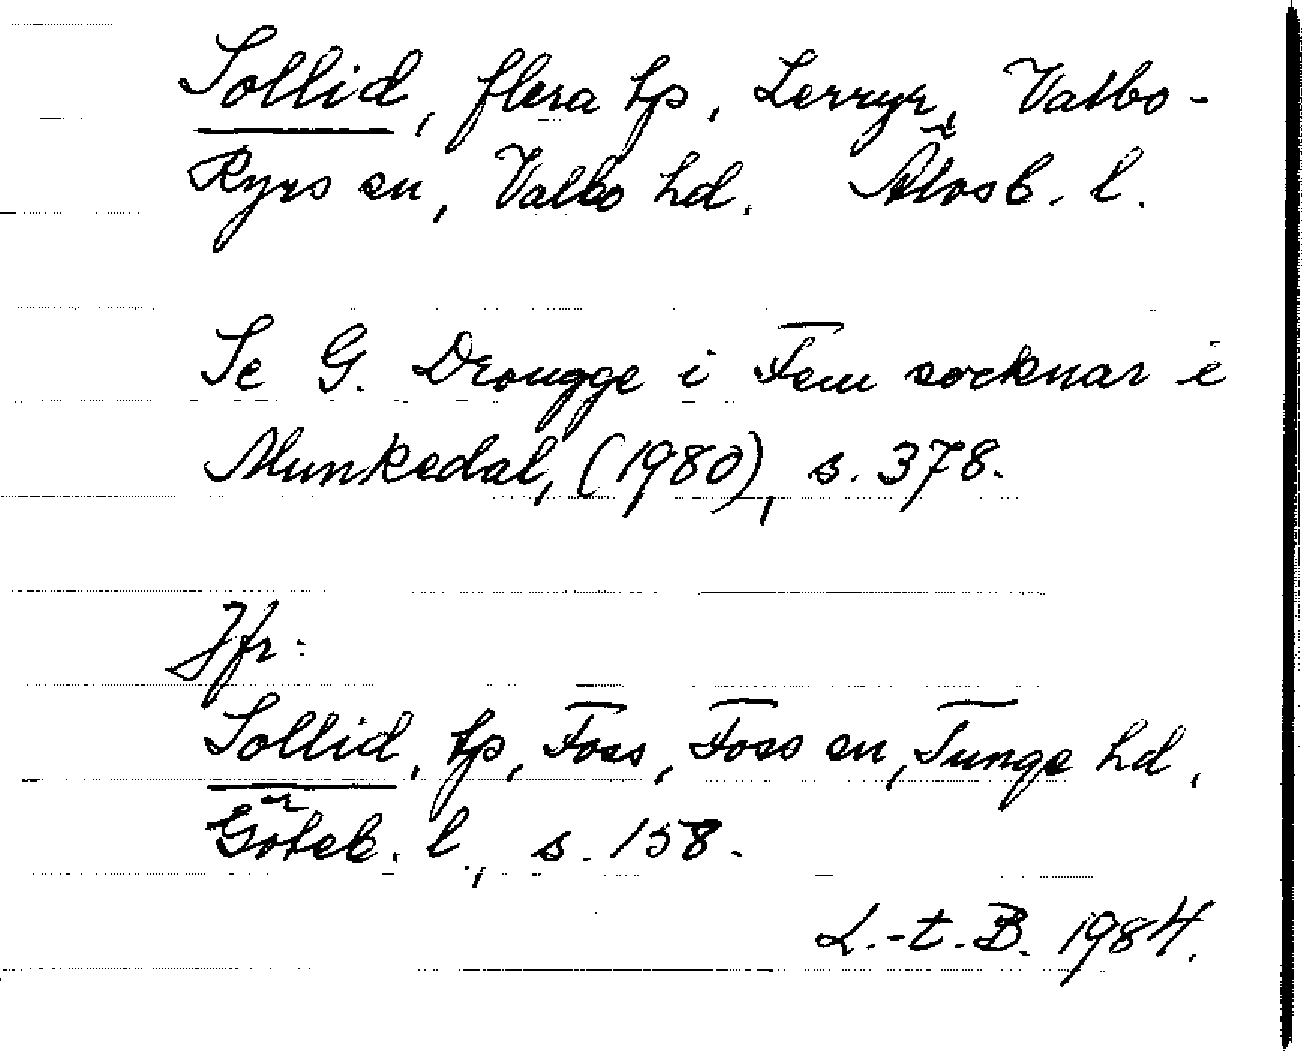 Sollid, flera hp, Lerryr, Valbo-
Ryrs sn, Valbo hd. Älvsb. l.
Se G. Drougge i Fem socknar i
Munkedal, (1980), s. 378.
Jfr:
Sollid, hp, Foss, Foss sn, Tunge hd,
Göteb. l., s. 158.
L.-t. B. 1984.